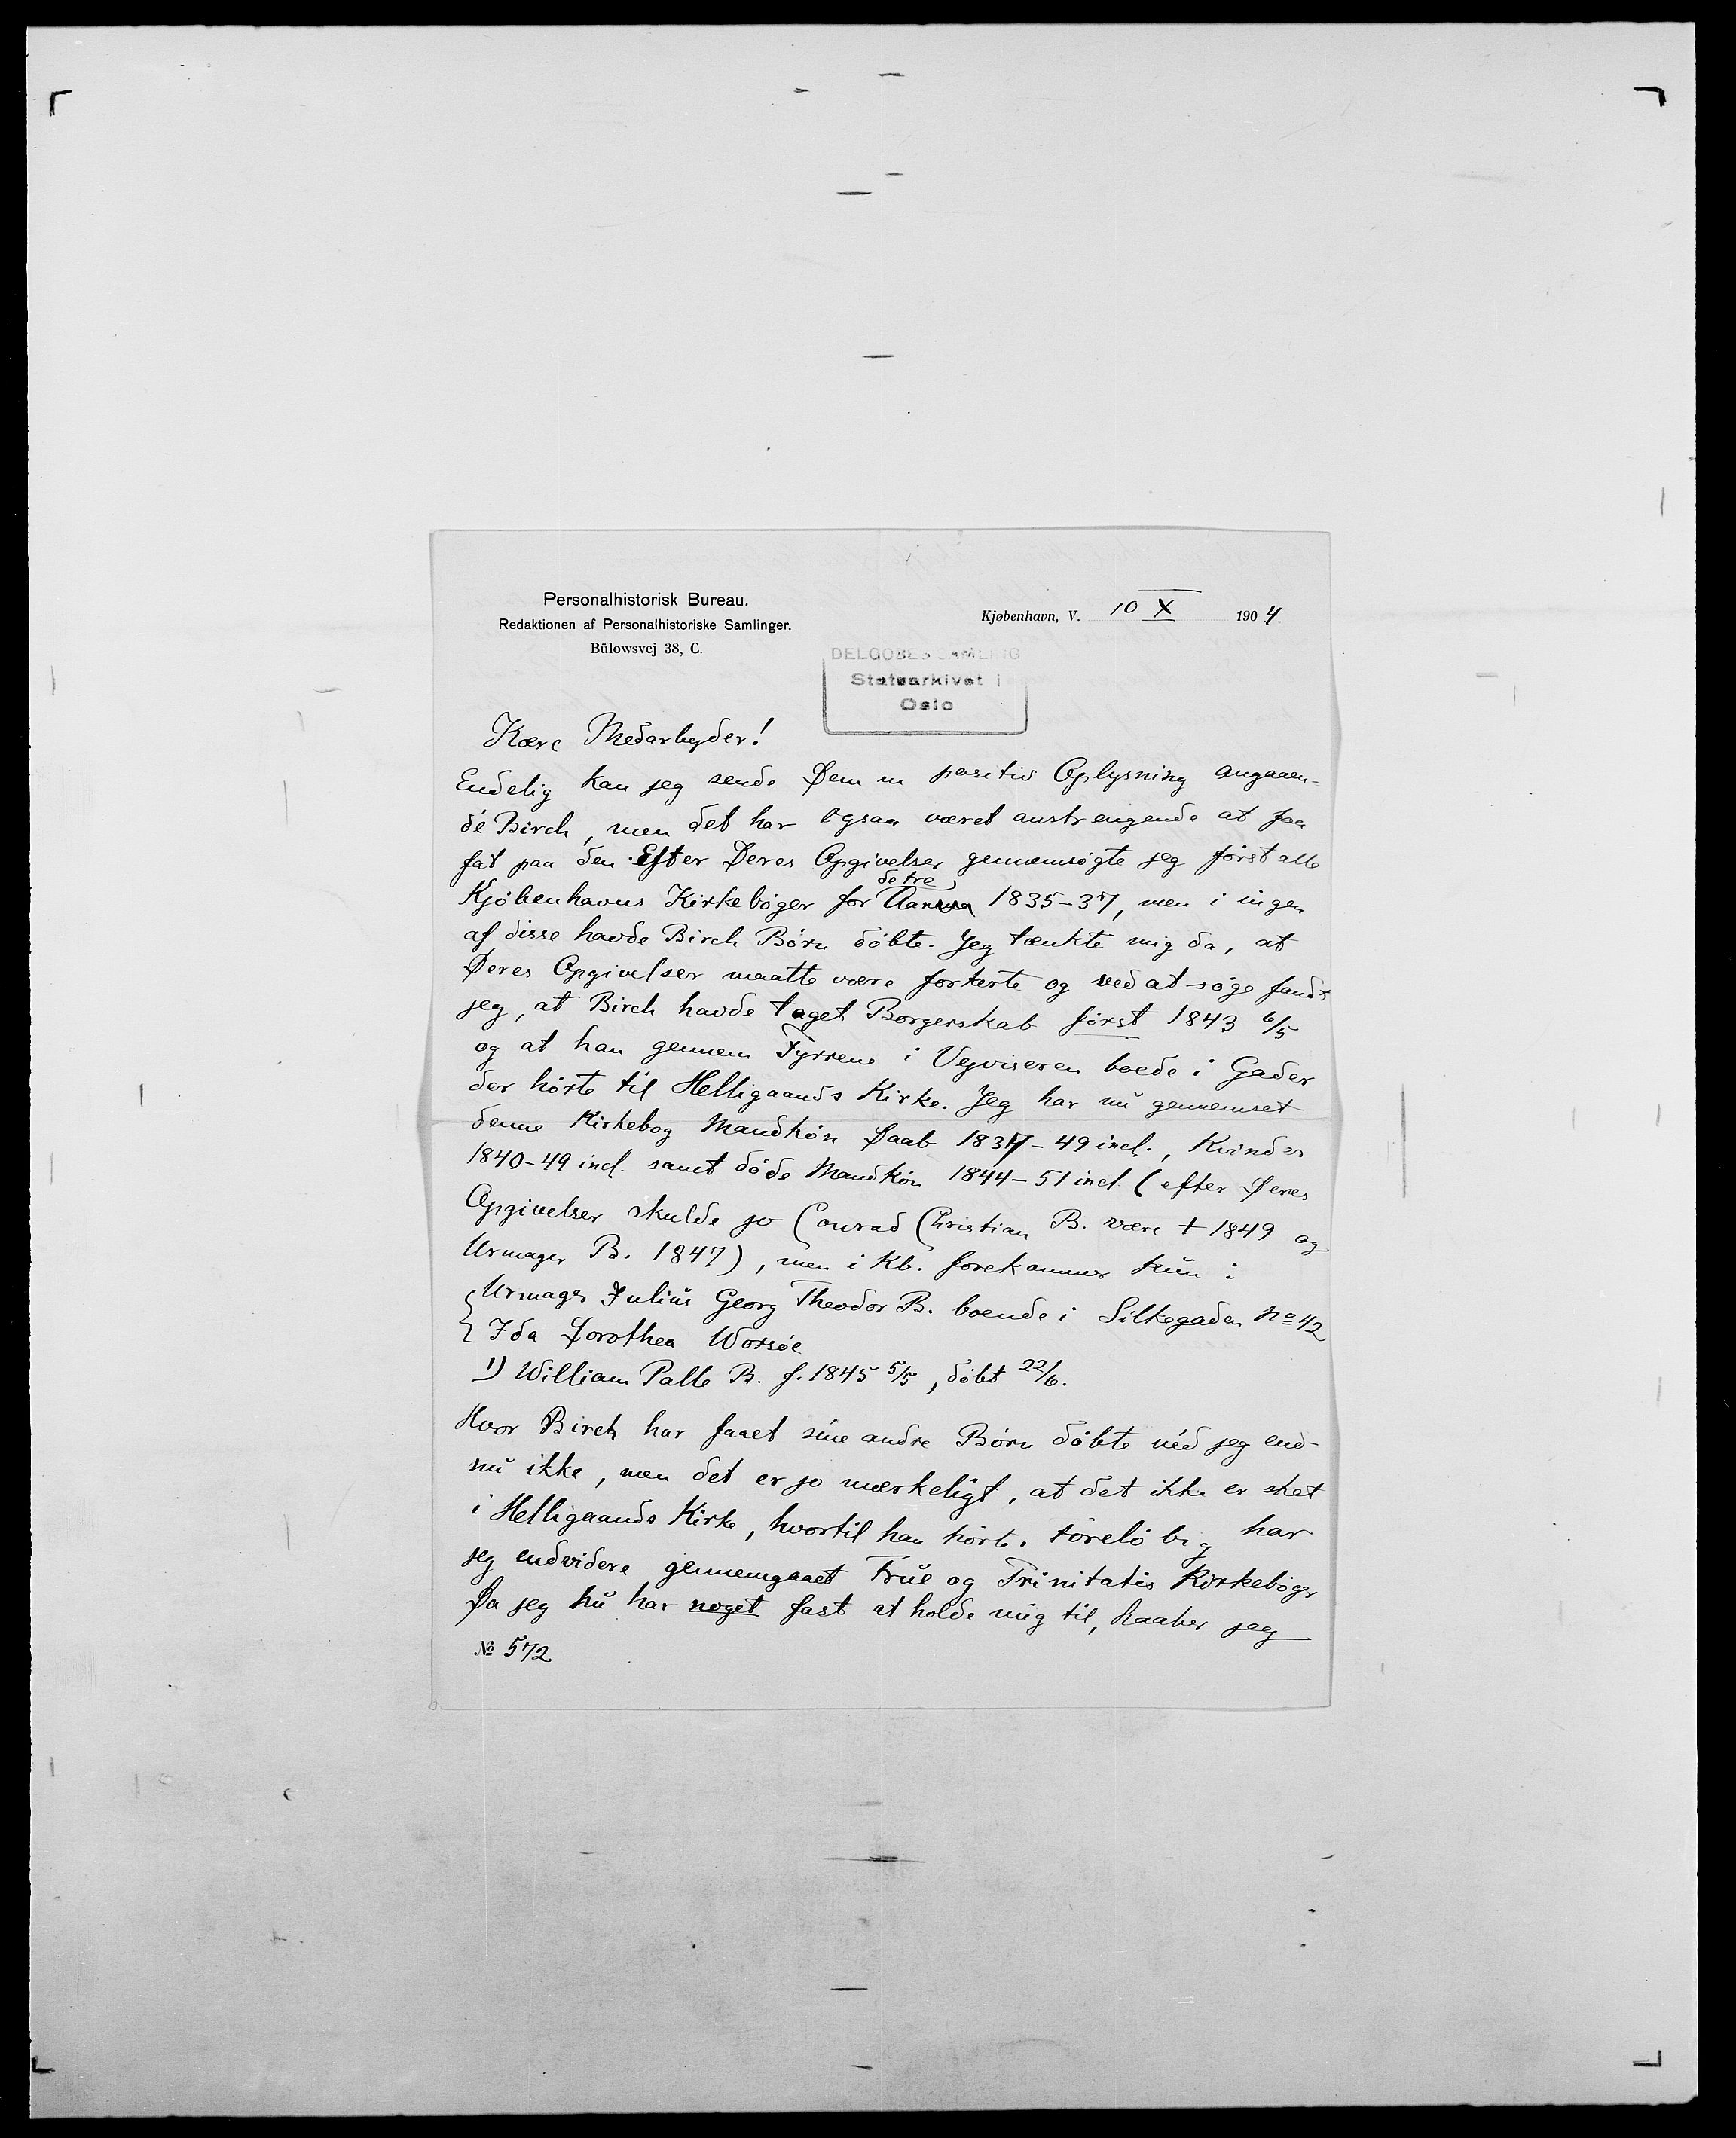 Personalhistorisk Bureau.
Redaktionen af Personalhistoriske Samlinger.
Bülowsvej 38, C.
Kjøbenhavn, V. 10 X 1904.
DELGOBES SAMLING
Statsarkivet i
Oslo
Kære Medarbejder!
Endelig kan jeg sende Dem en positiv Oplysning angaaen-
de Birch, men det har ogsaa været anstrengende at faa
fat paa den. Efter Deres Opgivelser gennemsøgte jeg først alle
de tre
Kjøbenhavns Kirkebøger for Aarene 1835-37, men i ingen
af disse havde Birch Børn døbte. Jeg tænkte mig da, at
Deres Opgivelser maatte være forkerte og ved at søge fandt
jeg, at Birch havde taget Borgerskab først 1843 6/5
og at han gennem Fyrrene i Vejviseren boede i Gader
der hørte til Helligaands Kirke. Jeg har nu gennemset
denne Kirkebog Mandkøn Daab 1837-49 incl., Kvinder
1840-49 incl. samt døde Mandkøn 1844-51 incl (efter Deres
Opgivelser skulde jo Conrad Christian B. være † 1849 og
Urmager B. 1847), men i Kb. forekommer kun:
Urmager Julius Georg Theodor B. boende i Silkegaden No 42
Ida Dorothea Worsøe
1) William Palle B. f. 1845 5/5, døbt 22/6.
Hvor Birch har faaet sine andre Børn døbte véd jeg end-
nu ikke, men det er jo mærkeligt, at det ikke er sket
i Helligaands Kirke, hvortil han hørte. Foreløbig har
jeg endvidere gennemgaaet Frue og Trinitatis Kirkebøger
Da jeg nu har noget fast at holde mig til, haaber jeg
№ 572